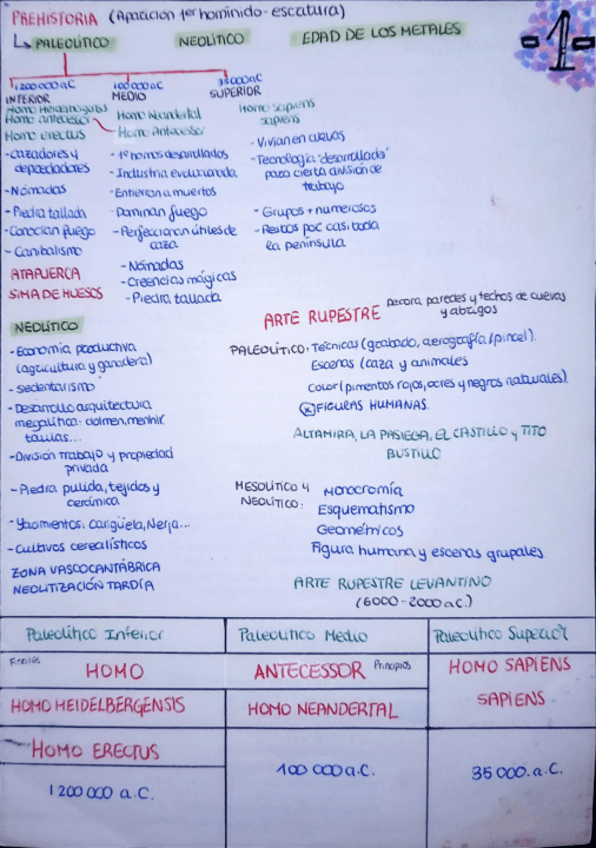 PREHISTORIA (Aparición 1er homínido - escritura)
-1-
PALEOLÍTICO
NEOLÍTICO
EDAD DE LOS METALES
1200000 a.C
100000 a.C
35000 a.C
INFERIOR
MEDIO
SUPERIOR
Homo Heidelbergensis
Homo antecessor
Homo erectus
- Cazadores y
depredadores
- Nómadas
- Piedra tallada
- Conocían fuego
- Canibalismo
ATAPUERCA
SIMA DE HUESOS
Homo Neandertal
Homo Antecessor
- 1os homos desarrollados
- Industria evolucionada
- Entierran a muertos
- Dominan fuego
- Perfeccionan útiles de
caza
- Nómadas
- Creencias mágicas
- Piedra tallada
Homo sapiens
sapiens
- Vivían en cuevas
- Tecnología "desarrollada"
para cierta división de
trabajo
- Grupos + numerosos
- Restos por casi toda
la península
NEOLÍTICO
- Economía productiva
(agricultura y ganadera)
- Sedentarismo
- Desarrollo arquitectura
megalítica: dolmen, menhir,
taulas...
- División trabajo y propiedad
privada
- Piedra pulida, tejidos y
cerámica
- Yacimientos: Carigüela, Nerja...
- Cultivos cerealísticos
ZONA VASCOCANTÁBRICA
NEOLITIZACIÓN TARDÍA
ARTE RUPESTRE Decora paredes y techos de cuevas
y abrigos
PALEOLÍTICO: Técnicas (grabado, aerografía/pincel).
Escenas (caza y animales
Color (pimentos rojos, ocres y negros naturales).
FIGURAS HUMANAS.
ALTAMIRA, LA PASIEGA, EL CASTILLO y TITO
BUSTILLO
MESOLÍTICO Y
NEOLÍTICO:
Monocromía
Esquematismo
Geométricos
Figura humana y escenas grupales
ARTE RUPESTRE LEVANTINO
(6000-2000 a.C.)
Paleolítico Inferior
Paleolítico Medio
Paleolítico Superior
Finales
HOMO
ANTECESSOR
Principios
HOMO SAPIENS
SAPIENS
HOMO HEIDELBERGENSIS
HOMO NEANDERTAL
HOMO ERECTUS
1 200 000 a.C.
100 000 a.C.
35 000. a.C.